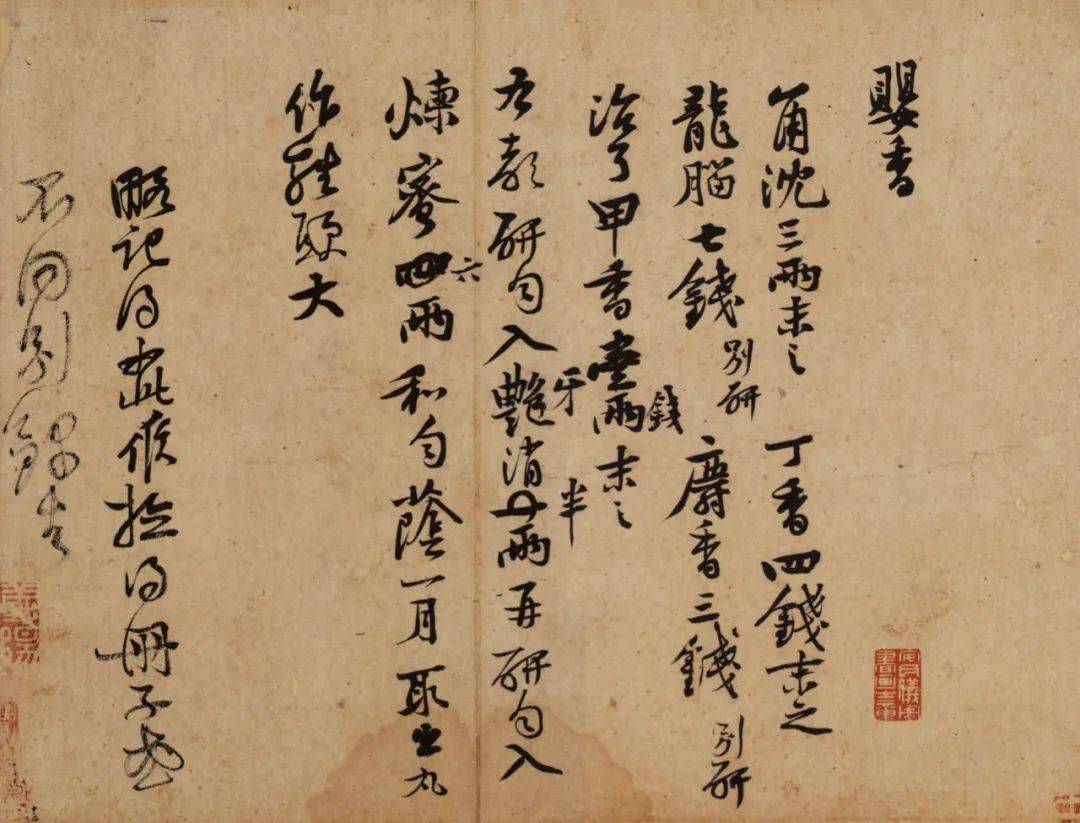 嬰香
角沈三兩末之 丁香四錢末之
龍腦七錢別研 麝香三錢別研
治了甲香壹兩錢末之
右都研勻入艷牙消半兩再研勻入
煉蜜六兩和勻蔭一月取出丸
作雞頭大
略記得如此候檢得冊子或
不同別錄去
安儀周書畫之章